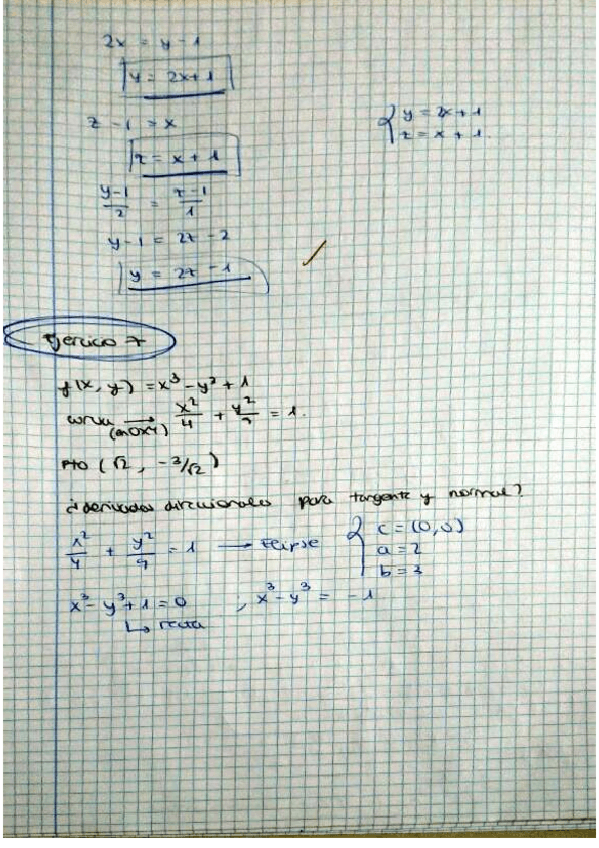 2x = y - 1
y = 2x + 1
z - 1 = x
z = x + 1
{ y = 2x + 1
z = x + 1
y-1/2 = z-1/1
y - 1 = 2z - 2
y = 2z - 1
Ejercicio 7
f(x, y) = x³ - y³ + 1
curva (en OXY) → x²/4 + y²/9 = 1.
Pto (√2, -3/√2)
¿derivadas direccionales para tangente y normal?
x²/4 + y²/9 = 1 → Elipse { c = (0,0)
a = 2
b = 3
x³ - y³ + 1 = 0 ; x³ - y³ = -1
↳ recta